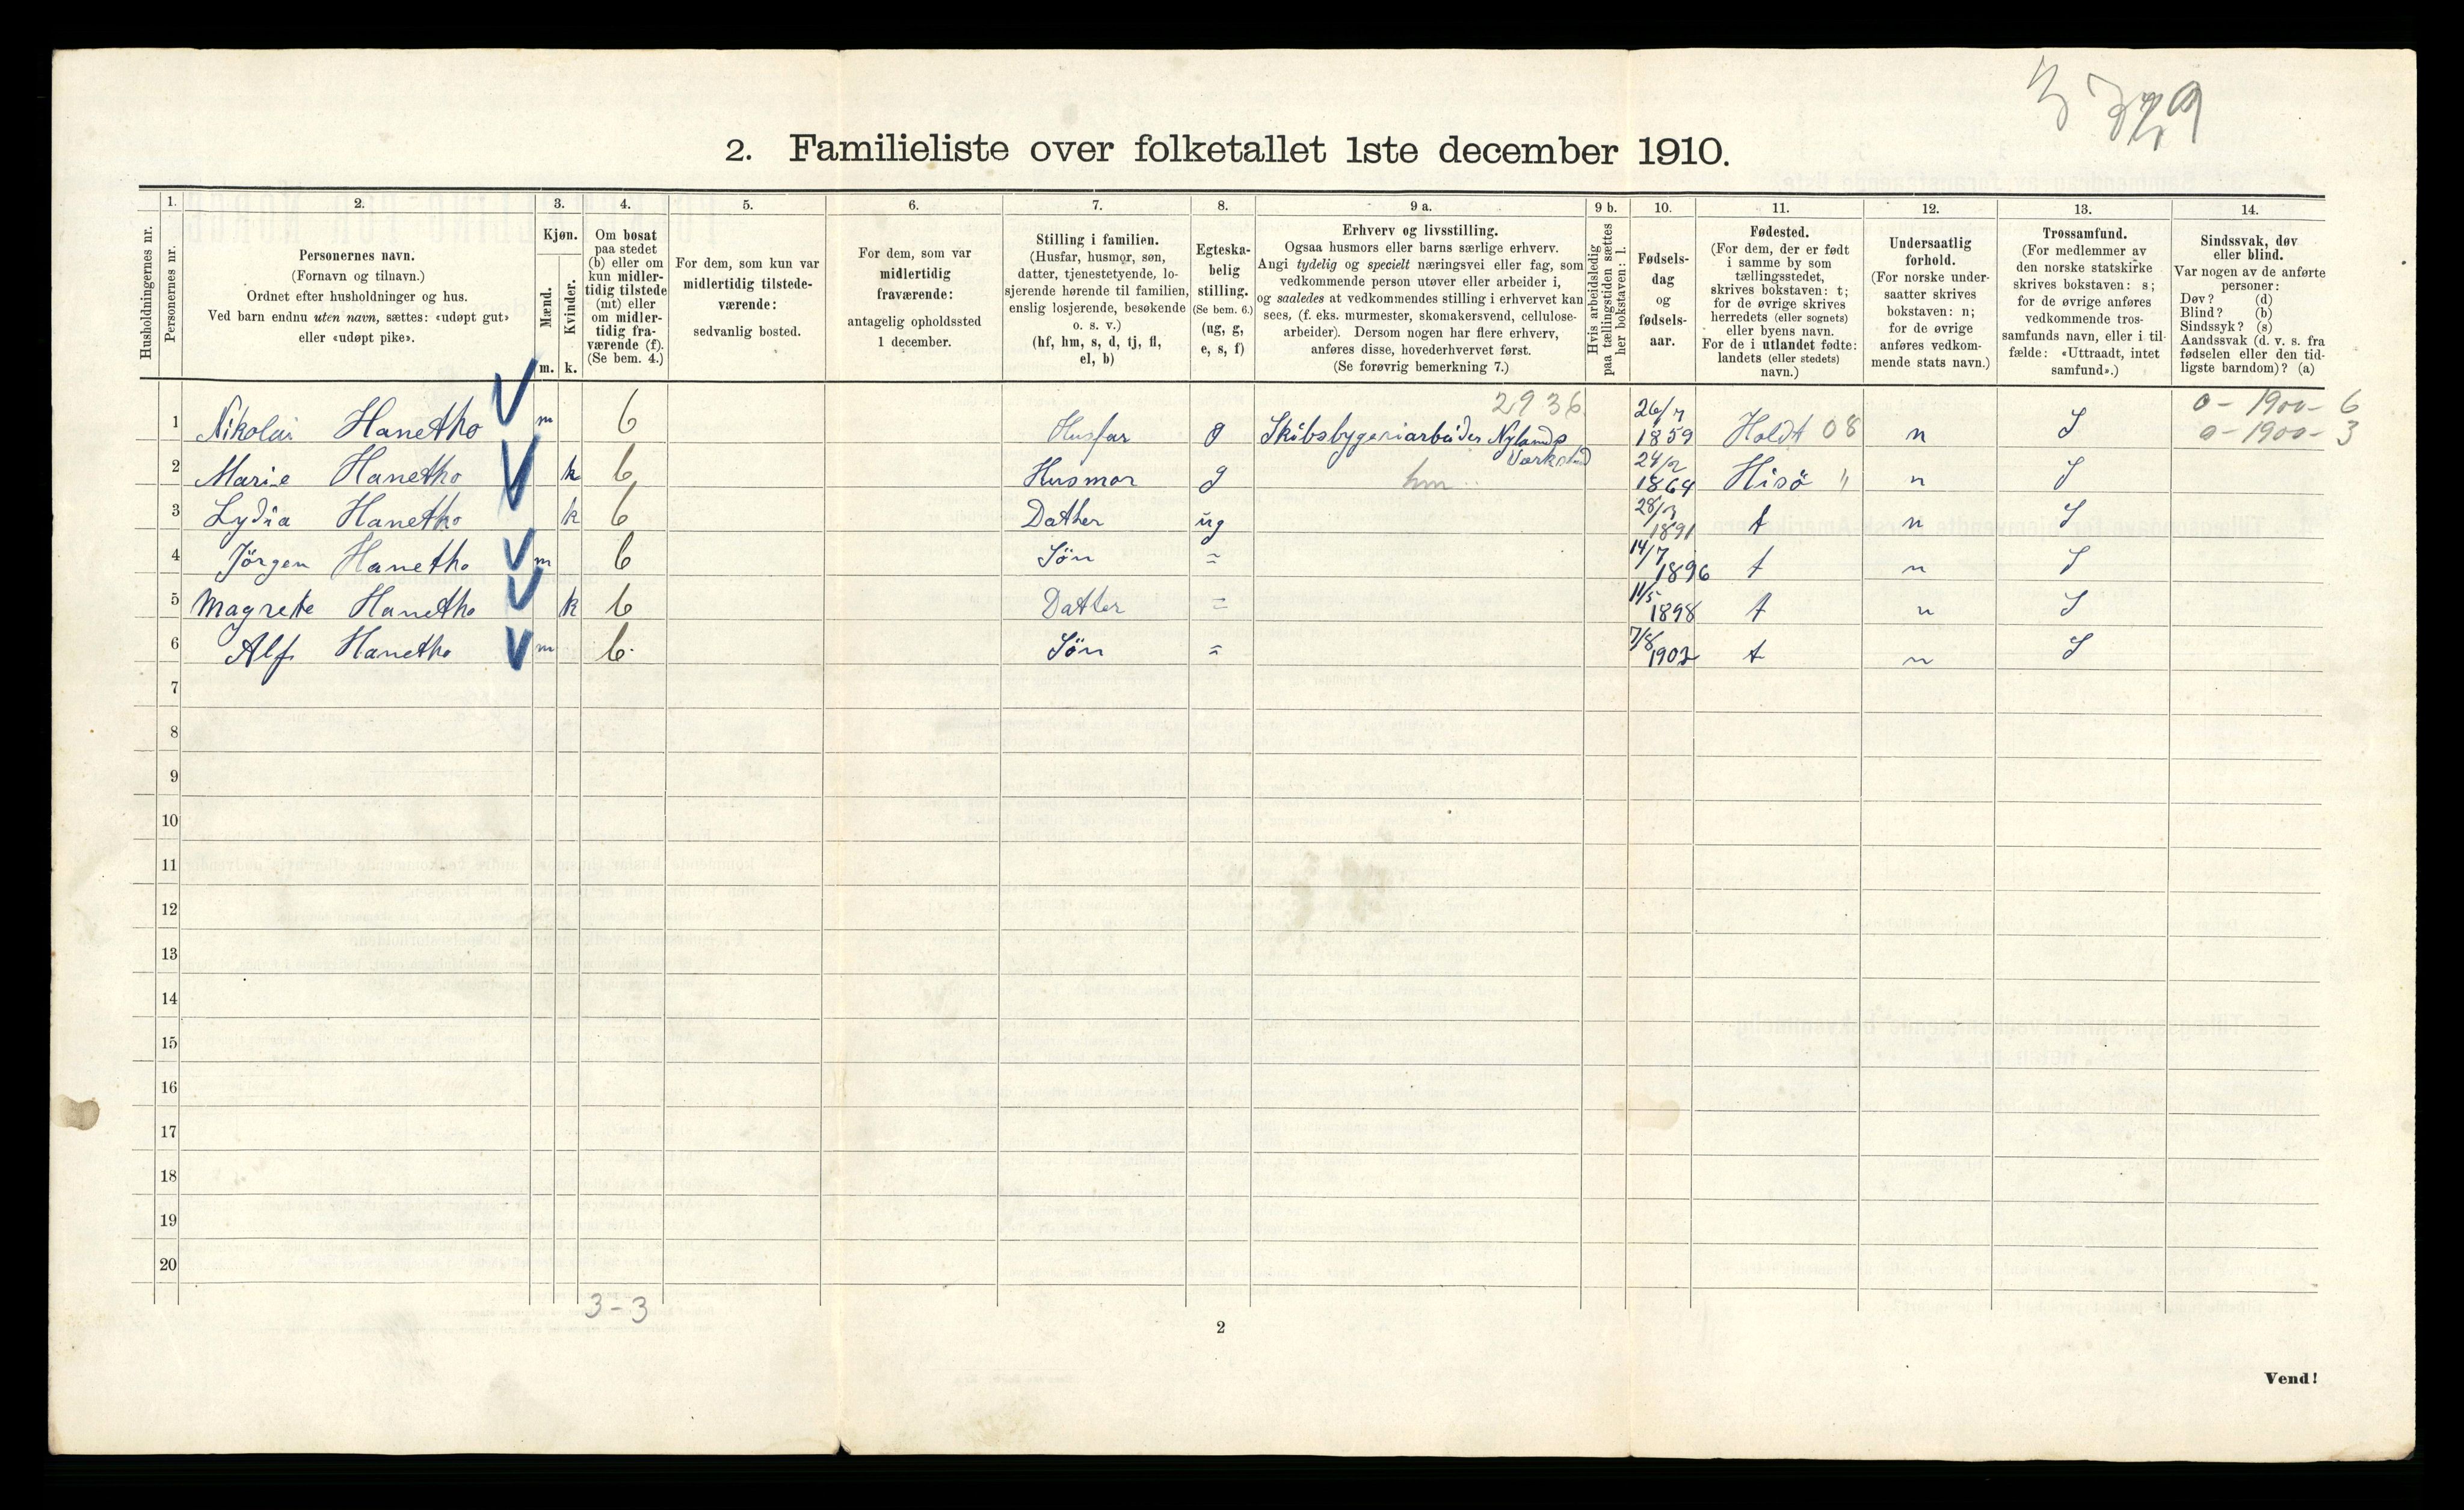 2. Familieliste over folketallet 1ste december 1910.
Husholdningernes nr.
1. Personernes nr.
2. Personernes navn.
(Fornavn og tilnavn.)
Ordnet efter husholdninger og hus.
Ved barn endnu uten navn, sættes: «udøpt gut»
eller «udøpt pike».
3. Kjøn.
Mænd. m.
Kvinder. k.
4. Om bosat
paa stedet
(b) eller om
kun midler-
tidig tilstede
(mt) eller
om midler-
tidig fra-
værende (f).
(Se bem. 4.)
5. For dem, som kun var
midlertidig tilstede-
værende:
sedvanlig bosted.
6. For dem, som var
midlertidig
fraværende:
antagelig opholdssted
1 december.
7. Stilling i familien.
(Husfar, husmor, søn,
datter, tjenestetyende, lo-
sjerende hørende til familien,
enslig losjerende, besøkende
o. s. v.)
(hf, hm, s, d, tj, fl,
el, b)
8. Egteska-
belig
stilling.
(Se bem. 6.)
(ug, g,
e, s, f)
9 a. Erhverv og livsstilling.
Ogsaa husmors eller barns særlige erhverv.
Angi tydelig og specielt næringsvei eller fag, som
vedkommende person utøver eller arbeider i,
og saaledes at vedkommendes stilling i erhvervet kan
sees, (f. eks. murmester, skomakersvend, cellulose-
arbeider). Dersom nogen har flere erhverv,
anføres disse, hovederhvervet først.
(Se forøvrig bemerkning 7.)
9 b. Hvis arbeidsledig
paa tællingstiden sættes
her bokstaven: l.
10. Fødsels-
dag
og
fødsels-
aar.
11. Fødested.
(For dem, der er født
i samme by som
tællingsstedet,
skrives bokstaven: t;
for de øvrige skrives
herredets (eller sognets)
eller byens navn.
For de i utlandet fødte:
landets (eller stedets)
navn.)
12. Undersaatlig
forhold.
(For norske under-
saatter skrives
bokstaven: n;
for de øvrige
anføres vedkom-
mende stats navn.)
13. Trossamfund.
(For medlemmer av
den norske statskirke
skrives bokstaven: s;
for de øvrige anføres
vedkommende tros-
samfunds navn, eller i til-
fælde: «Uttraadt, intet
samfund».)
14. Sindssvak, døv
eller blind.
Var nogen av de anførte
personer:
Døv? (d)
Blind? (b)
Sindssyk? (s)
Aandssvak (d. v. s. fra
fødselen eller den tid-
ligste barndom)? (a)
2936 0 - 1900 - 6
1 Nikolai Hanetho m b Husfar g Skibsbygeriarbeider Nylands Værksted 26/7 1859 Holdt 08 n S 0 - 1900 - 3
2 Marie Hanetho k b Husmor g hm 24/2 1864 Hisö " n S
3 Lydia Hanetho k b Datter ug 28/3 1891 t n S
4 Jörgen Hanetho m b Sön = 14/7 1896 t n S
5 Magrete Hanetho k b Datter = 11/5 1898 t n S
6 Alf Hanetho m b. Sön = 7/8 1902 t n S
7
8
9
10
11
12
13
14
15
16
17
18
19
20
3 - 3
2
Vend!